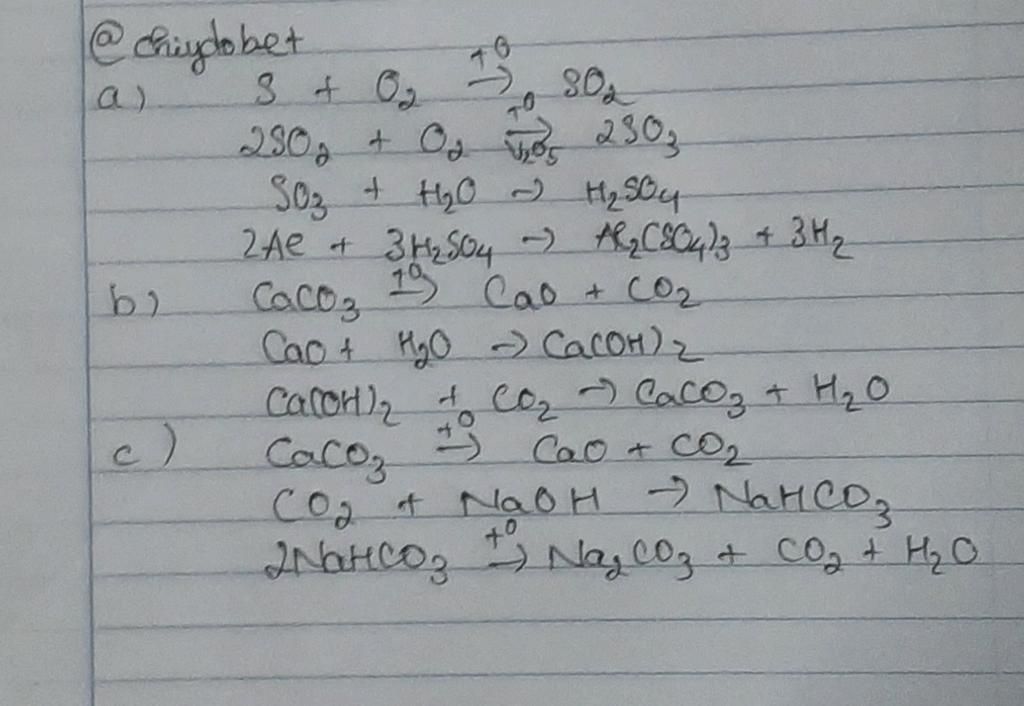 @chiydobet
a) S + O₂ →(t⁰) SO₂
2SO₂ + O₂ →(t⁰, V₂O₅) 2SO₃
SO₃ + H₂O → H₂SO₄
2Al + 3H₂SO₄ → Al₂(SO₄)₃ + 3H₂
b) CaCO₃ →(t⁰) CaO + CO₂
CaO + H₂O → Ca(OH)₂
Ca(OH)₂ + CO₂ → CaCO₃ + H₂O
c) CaCO₃ →(t⁰) CaO + CO₂
CO₂ + NaOH → NaHCO₃
2NaHCO₃ →(t⁰) Na₂CO₃ + CO₂ + H₂O